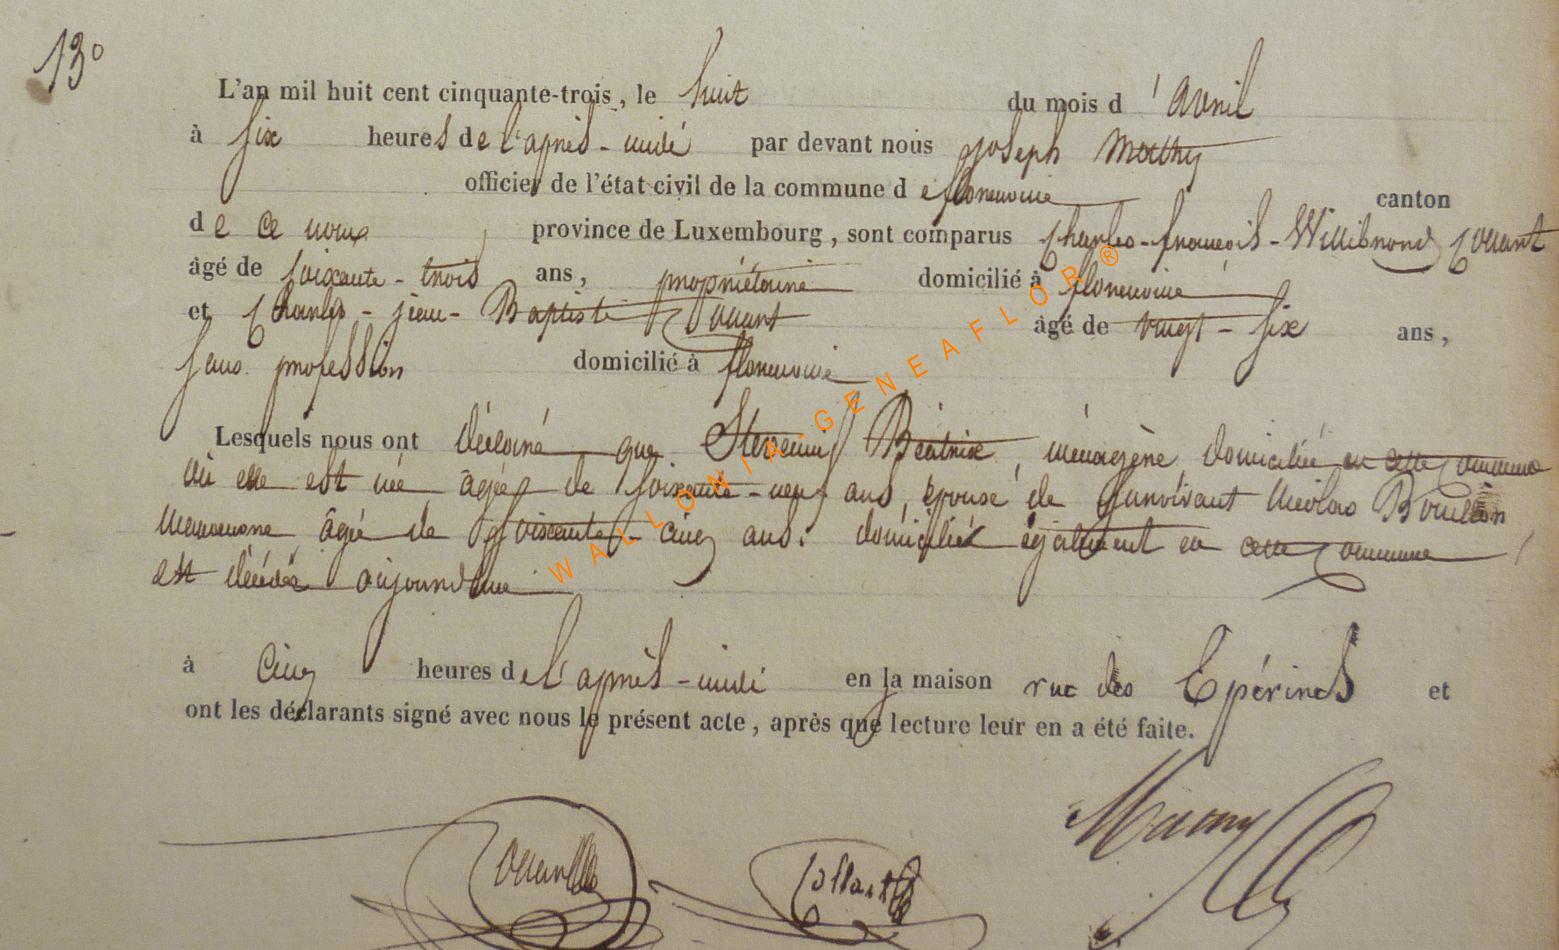 13°
L'an mil huit cent cinquante-trois, le huit du mois d'avril
à six heures de l'après-midi par devant nous Joseph Mathy
officier de l'état civil de la commune de florenville canton
de ce nom province de Luxembourg, sont comparus Charles-françois-Willibrord Collart
âgé de soixante-trois ans, propriétaire domicilié à florenville
et Charles-jean-Baptiste Collart âgé de vingt-six ans,
sans profession domicilié à florenville
Lesquels nous ont déclaré que Béatrix, ménagère domiciliée en cette commune
où elle est née âgée de soixante-neuf ans, épouse de survivant Nicolas
âgé de soixante-cinq ans, domicilié également en cette commune,
est décédée aujourd'hui
à cinq heures de l'après-midi en la maison rue des Epérires et
ont les déclarants signé avec nous le présent acte, après que lecture leur en a été faite.
Collart Mathy
WALLONIA-GENEAFLOR®